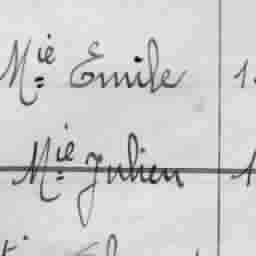 Mie Emile 1
Mie Julien 1